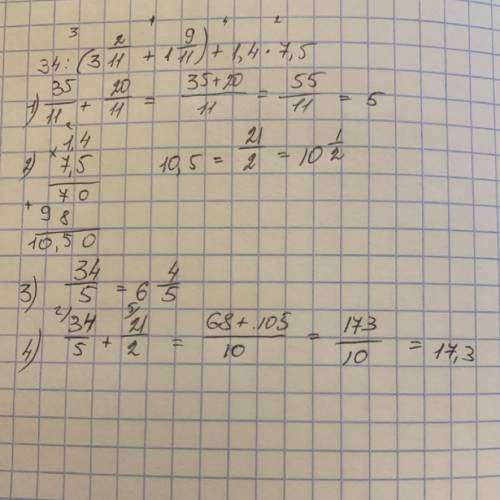 3 1 4 2
34 : (3 2/11 + 1 9/11) + 1,4 · 7,5
1) 35/11 + 20/11 = 35+20/11 = 55/11 = 5
2) × 1,4
7,5
+ 70
98
10,50
10,5 = 21/2 = 10 1/2
3) 34/5 = 6 4/5
4) 34/5 + 21/2 = 68+105/10 = 173/10 = 17,3